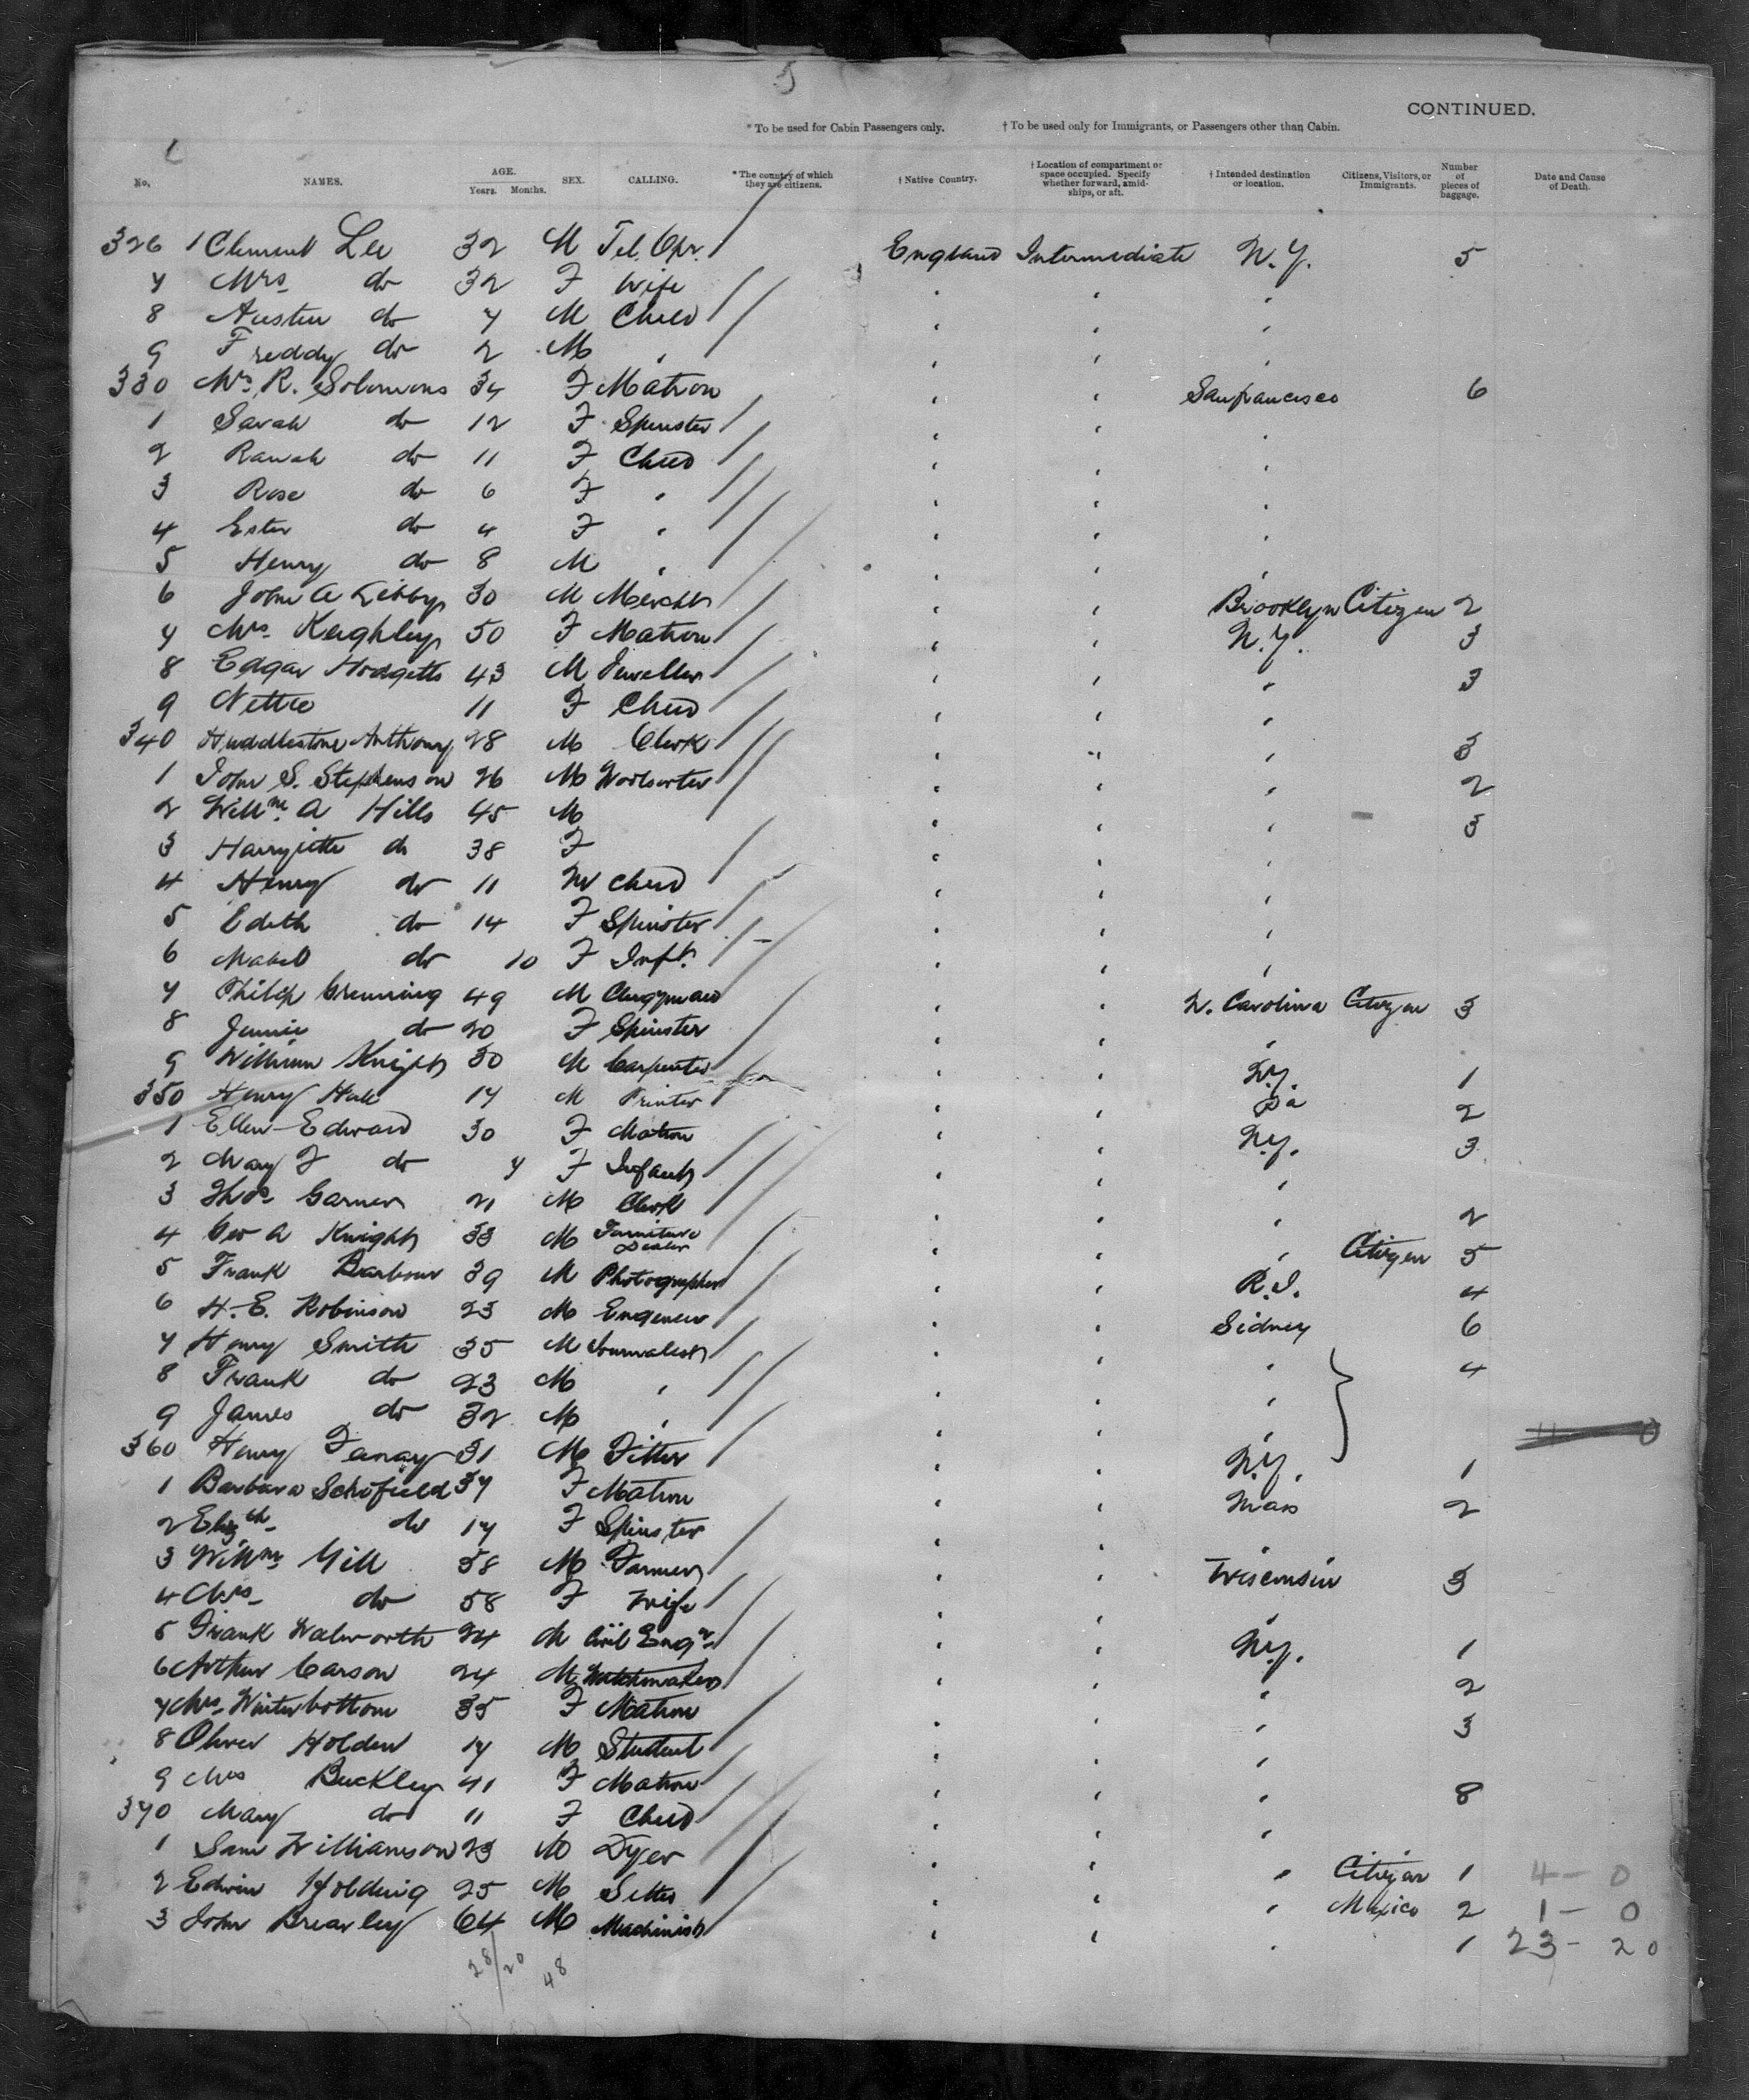 5
CONTINUED.
* To be used for Cabin Passengers only. † To be used only for Immigrants, or Passengers other than Cabin.
No. NAMES. AGE. Years. Months. SEX. CALLING. * The country of which they are citizens. † Native Country. † Location of compartment or space occupied. Specify whether forward, amidships, or aft. † Intended destination or location. Citizens, Visitors, or Immigrants. Number of pieces of baggage. Date and Cause of Death.
326 1 Clement Lee 32 M Tel. Opr. England Intermediate N.Y. 5
7 Mrs do 32 F Wife " " "
8 Austin do 7 M Child " " "
9 Freddy do 2 M " " " "
330 Mrs R. Solomons 34 F Matron " " Sanfrancisco 6
1 Sarah do 12 F Spinster " " "
2 do 11 F Child " " "
3 Rose do 6 F " " " "
4 Ester do 4 F " " " "
5 Henry do 8 M " " " "
6 John A Libby 30 M Mercht " " Brooklyn Citizen 2
7 Mrs Keighley 50 F Matron " " N.Y. 3
8 Edgar Hodgetts 43 M Jeweller " " " 3
9 Nettie 11 F Child " " "
340 Huddlestone Anthony 28 M Clerk " " " 3
1 John S. Stephenson 26 M Woolsorter " " " 2
2 Willm. A Hills 45 M " " " 3
3 Harryitte do 38 F " " "
4 Henry do 11 M Child " " "
5 Edith do 14 F Spinster " " "
6 Mabel do 10 F Inft. " " "
7 Philip Greuning 49 M Clergyman " " N. Carolina Citizen 3
8 Jennie do 20 F Spinster " " "
9 William Knight 30 M Carpenter " " N.Y. 1
350 Henry Hall 17 M Printer " " Pa 2
1 Ellen Edward 30 F Matron " " N.Y. 3
2 Mary F do 7 F Infant " " "
3 Thos Garner 21 M Clerk " " " 2
4 Geo A Knight 33 M Furniture Dealer " " " Citizen 5
5 Frank Barbour 39 M Photographer " " R.I. 4
6 H. E. Robinson 23 M Engeneer " " Sidney 6
7 Henry Smith 35 M Journalist " " " 4
8 Frank do 23 M " " " "
9 James do 32 M " " " "
360 Henry 31 M Fitter " " N.Y. 1
1 Barbara Schofield 37 F Matron " " Mass 2
2 Elizth do 17 F Spinster " " "
3 Willm Gill 58 M Farmer " " Wisconsin 3
4 Mrs do 58 F Wife " " "
5 Frank Walworth 24 M Civil Engr " " N.Y. 1
6 Arthur Carson 24 M Watchmaker " " " 2
7 Mrs Winterbottom 35 F Matron " " " 3
8 Oliver Holden 17 M Student " " "
9 Mrs Buckley 41 F Matron " " " 8
370 Mary do 11 F Child " " "
1 Sam Williamson 23 M Dyer " " " Citizen 1 4 - 0
2 Edwin Holding 25 M " " " Mexico 2 1 - 0
3 John Brearley 64 M Machinist " " " 1 23 - 20
28/20 48